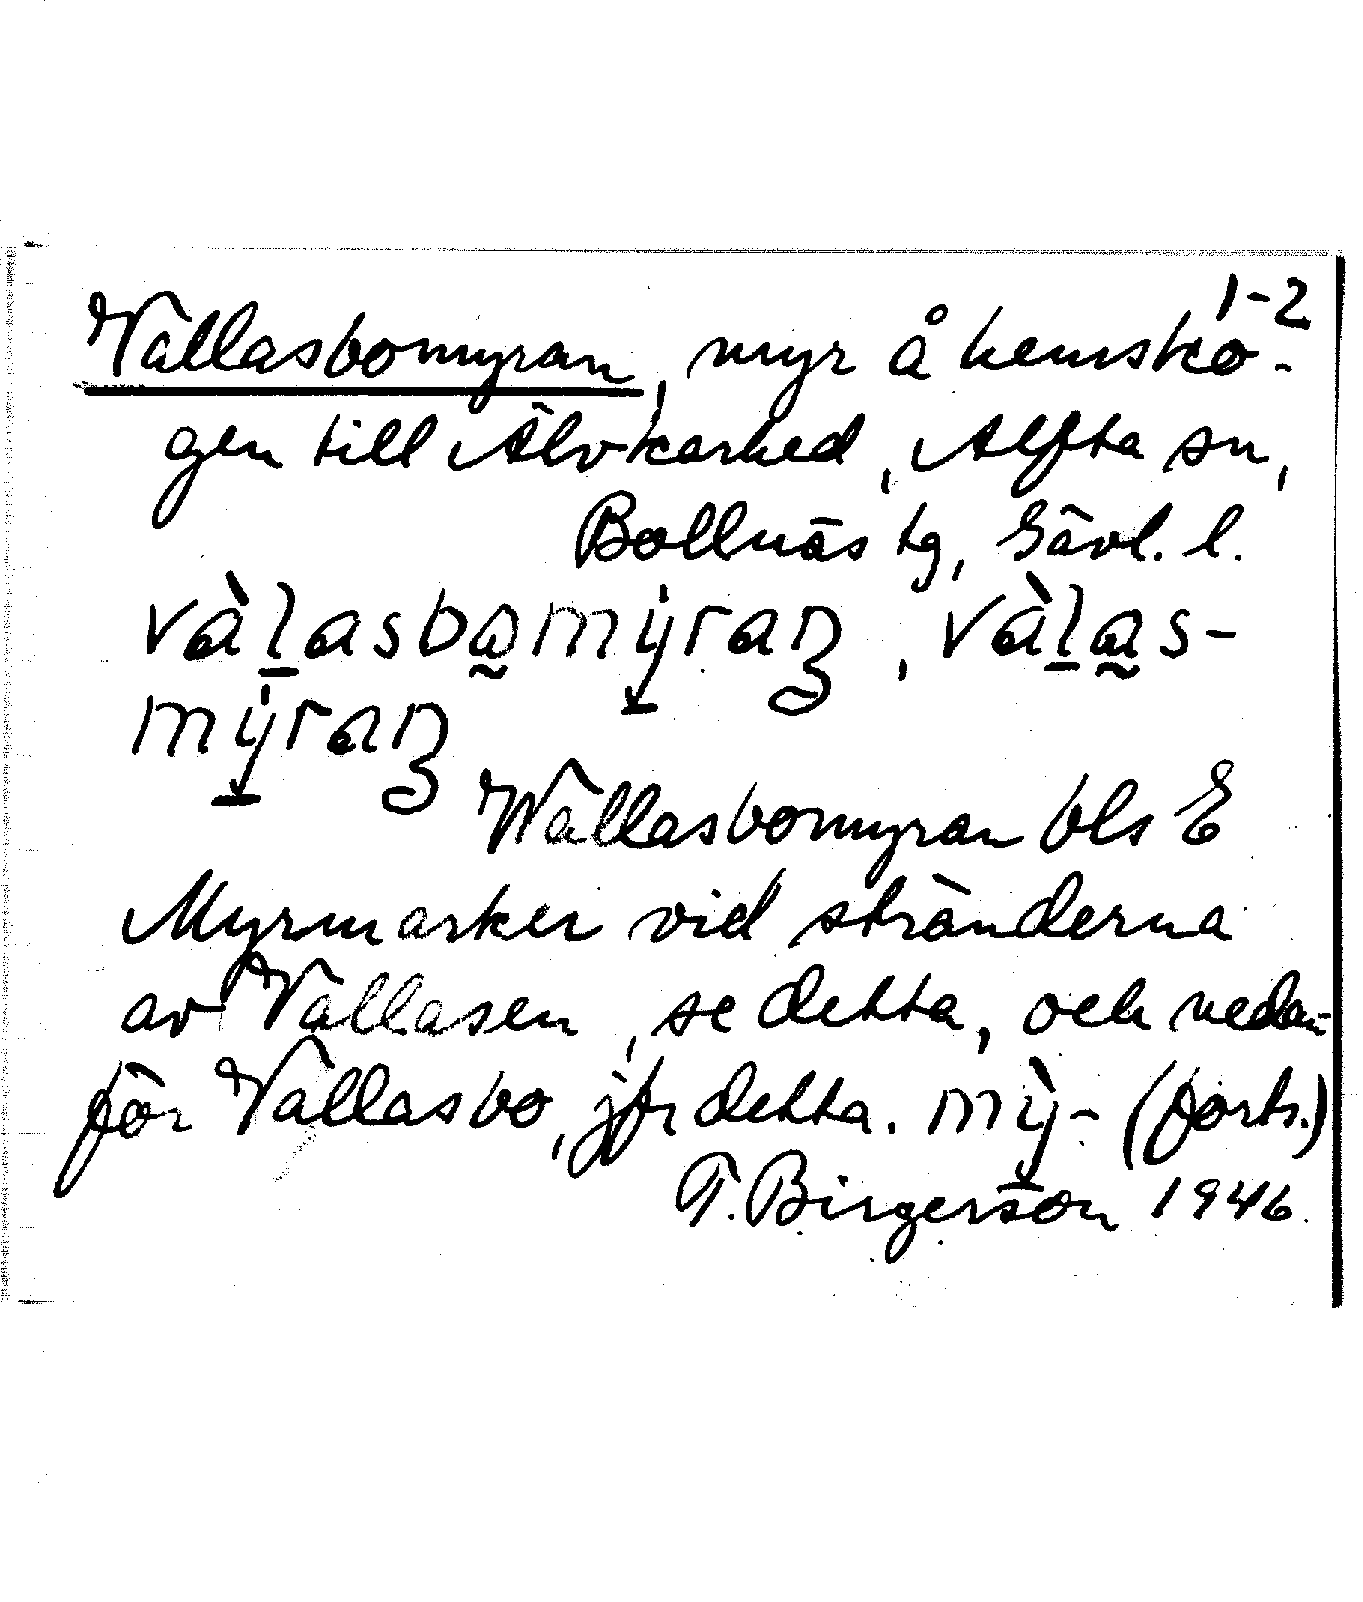 1-2
Vallasbomyran, myr å hemsko-
gen till Älvkarhed, Alfta sn,
Bollnäs tg, Gävl. l.
vàl̲asbɷ̰mỳraꞑ, vàl̲a̰s-
mỳraꞑ
Wallasbomyran bls E
Myrmarker vid stränderna
av Vallasen, se detta, och nedan-
för Vallasbo, jfr detta. mỳ- (forts.)
T. Birgerson 1946.